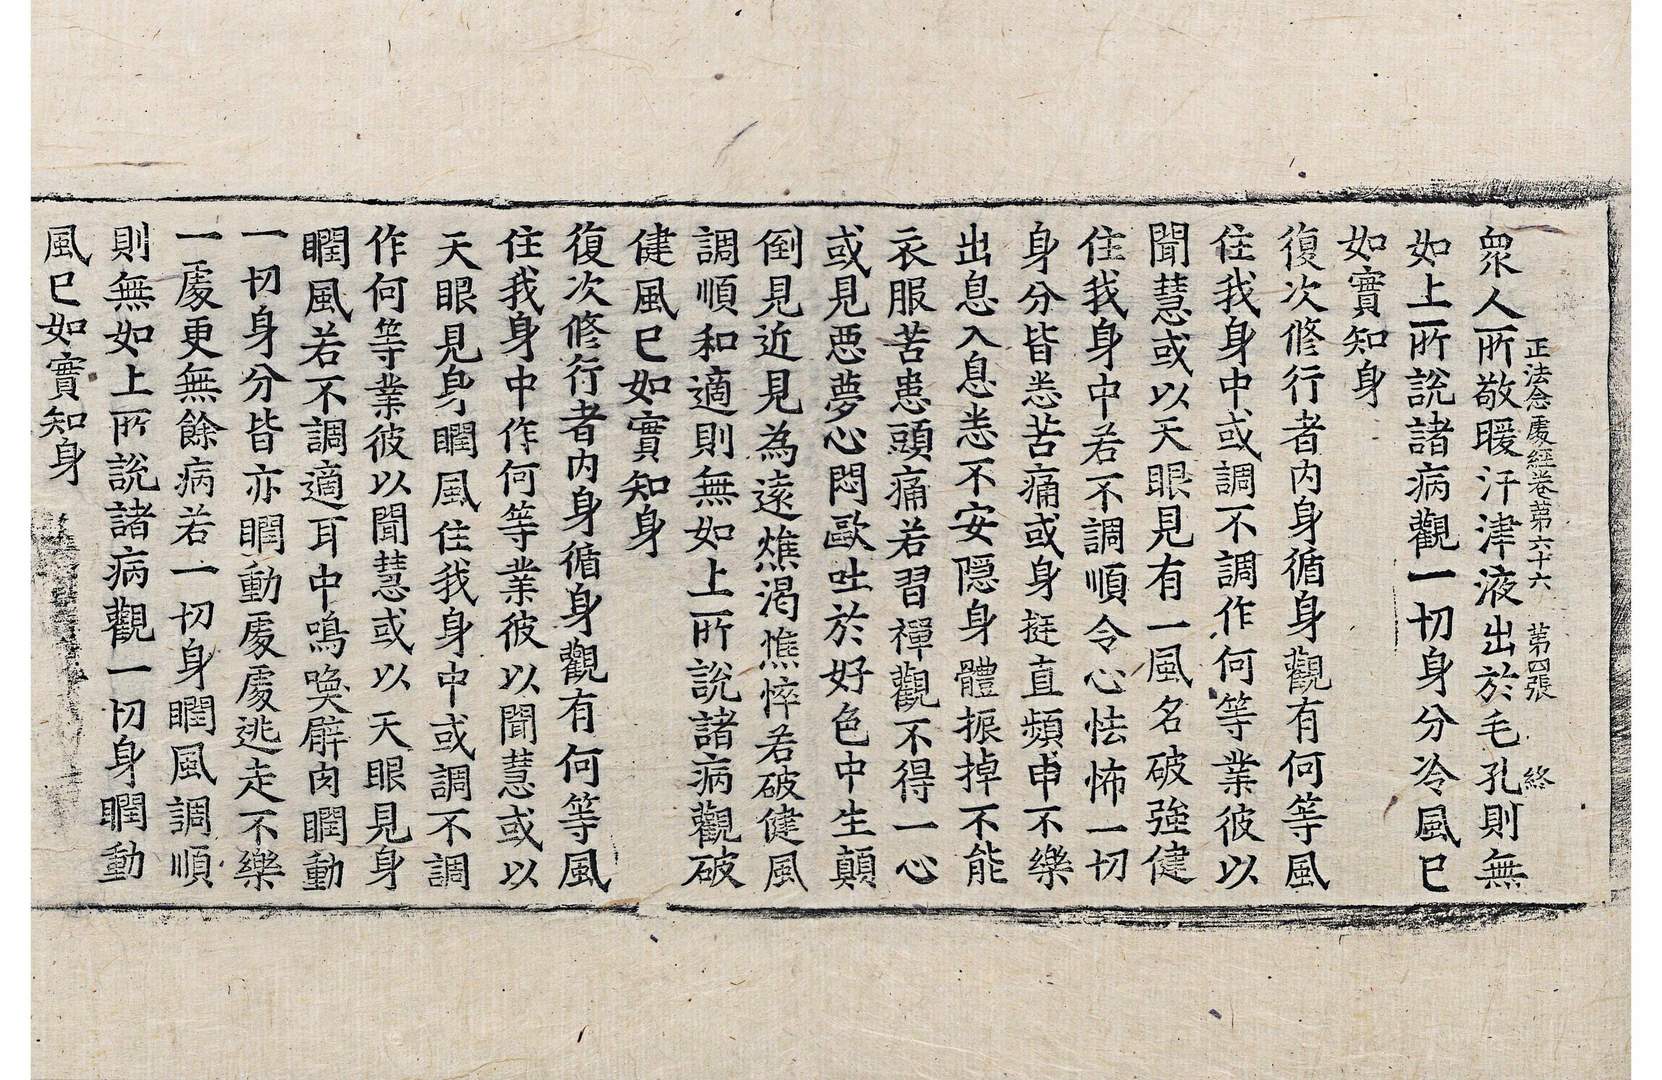 衆人所敬暖汗津液出於毛孔則無
正法念處經卷第六十六　第四張　終
如上所說諸病觀一切身分冷風已
如實知身
復次修行者内身循身觀有何等風
住我身中或調不調作何等業彼以
聞慧或以天眼見有一風名破強健
住我身中若不調順令心怯怖一切
身分皆悉苦痛或身挺直頻申不樂
出息入息悉不安隱身體振掉不能
衣服苦患頭痛若習禪觀不得一心
或見惡夢心悶歐吐於好色中生顛
倒見近見為遠燋渴憔悴若破健風
調順和適則無如上所說諸病觀破
健風已如實知身
復次修行者内身循身觀有何等風
住我身中作何等業彼以聞慧或以
天眼見身瞤風住我身中或調不調
作何等業彼以聞慧或以天眼見身
瞤風若不調適耳中鳴喚擗肉瞤動
一切身分皆亦瞤動處處逃走不樂
一處更無餘病若一切身瞤風調順
則無如上所說諸病觀一切身瞤動
風已如實知身